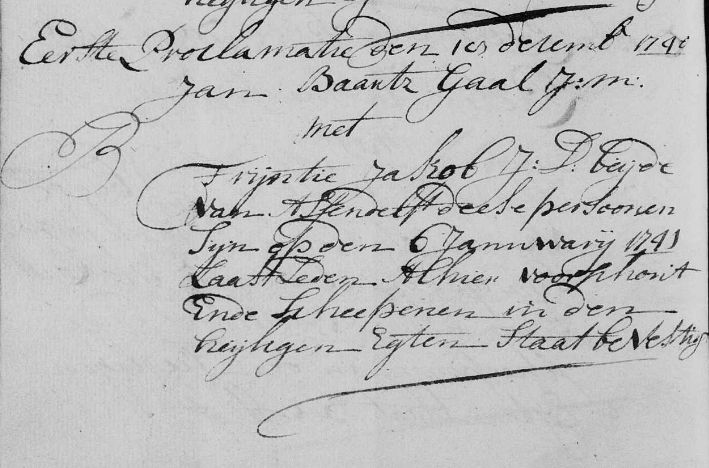 heijligen
Eerste Proclamatie den 10 decemb 1740
Jan Baartz Gaal J:m:
met
B
Trijntie Jakob J:D: beijde
van Assendelft deese persoonen
Sijn op den 6 Januwarij 1741
Laast Leden Alhier voor schout
Ende scheepenen in den
heijligen Egten Staat bevestig